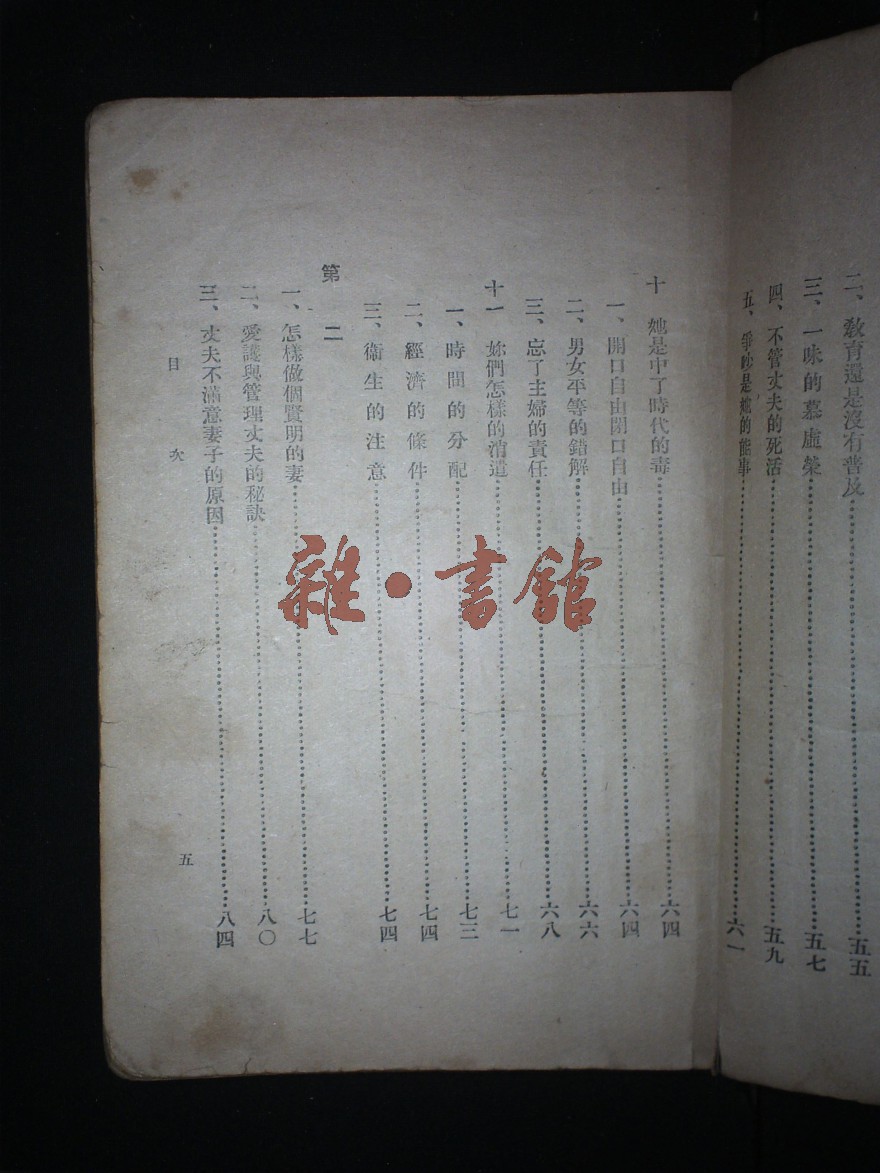 二、教育還是沒有普及……五五
三、一味的慕虛榮……五七
四、不管丈夫的死活……五九
五、爭吵是她的能事……六一
十 她是中了時代的毒……六四
一、開口自由閉口自由……六四
二、男女平等的錯解……六六
三、忘了主婦的責任……六八
十一 妳們怎樣的消遣……七一
一、時間的分配……七三
二、經濟的條件……七四
三、衞生的注意……七四
第二
一、怎樣做個賢明的妻……七七
二、愛護與管理丈夫的秘訣……八〇
三、丈夫不滿意妻子的原因……八四
目次
五
雜·書館